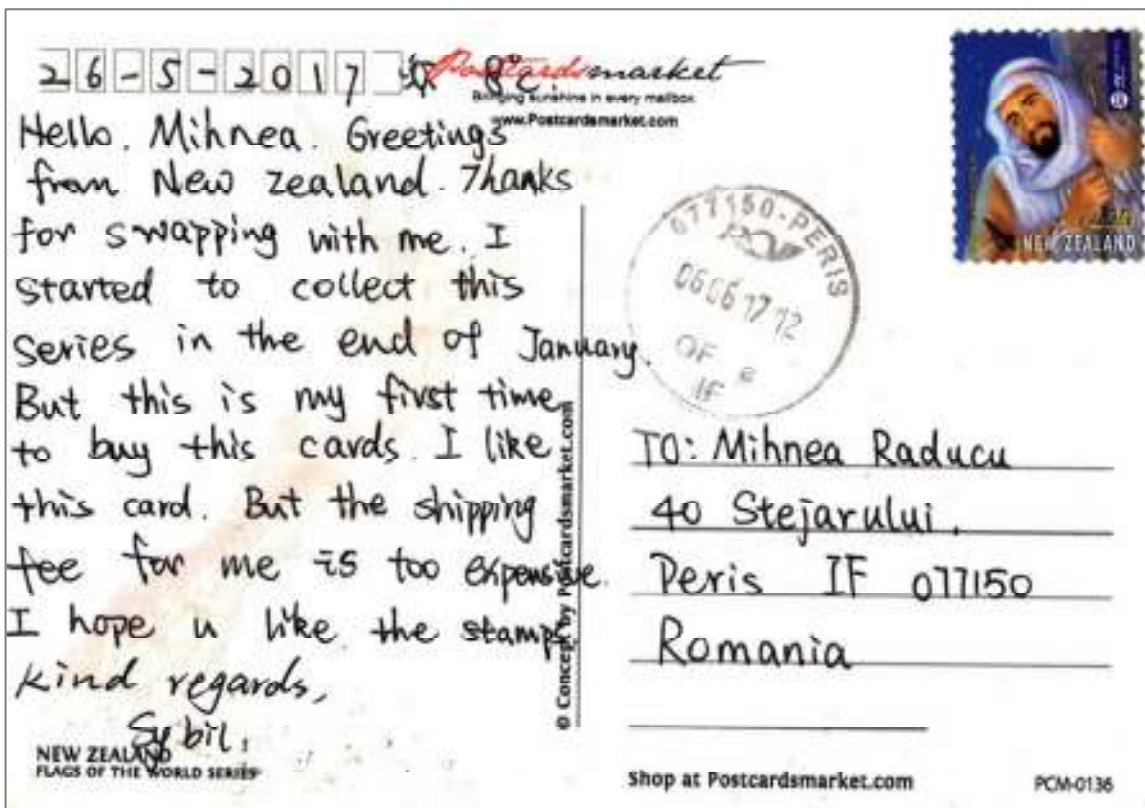 26-5-2017 8℃
Postcardsmarket
Bringing sunshine in every mailbox
www.Postcardsmarket.com
Hello. Mihnea. Greetings
from New Zealand. Thanks
for swapping with me. I
started to collect this
series in the end of January.
But this is my first time
to buy this cards. I like
this card. But the shipping
fee for me is too expensive.
I hope u like the stamps.
Kind regards,
Sybil.
NEW ZEALAND
FLAGS OF THE WORLD SERIES
© Concept by Postcardsmarket.com
NEW ZEALAND
077150-PERIS
06 06 17 12
OF e
IF
TO: Mihnea Raducu
40 Stejarului,
Peris IF 077150
Romania
Shop at Postcardsmarket.com
PCM-0136